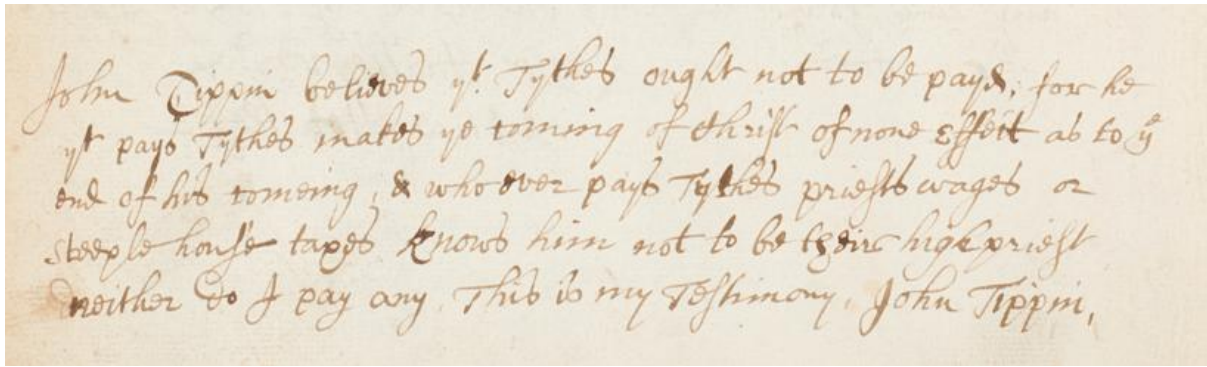 John Tippin believes yt. Tythes ought not to be payd, for he
yt pays Tythes makes ye coming of Christ of none Effect as to ye
end of his comeing, & who ever pays Tythes priests wages or
steeple house taxes knows him not to be their high priest
neither do I pay any. This is my Testimony. John Tippin,